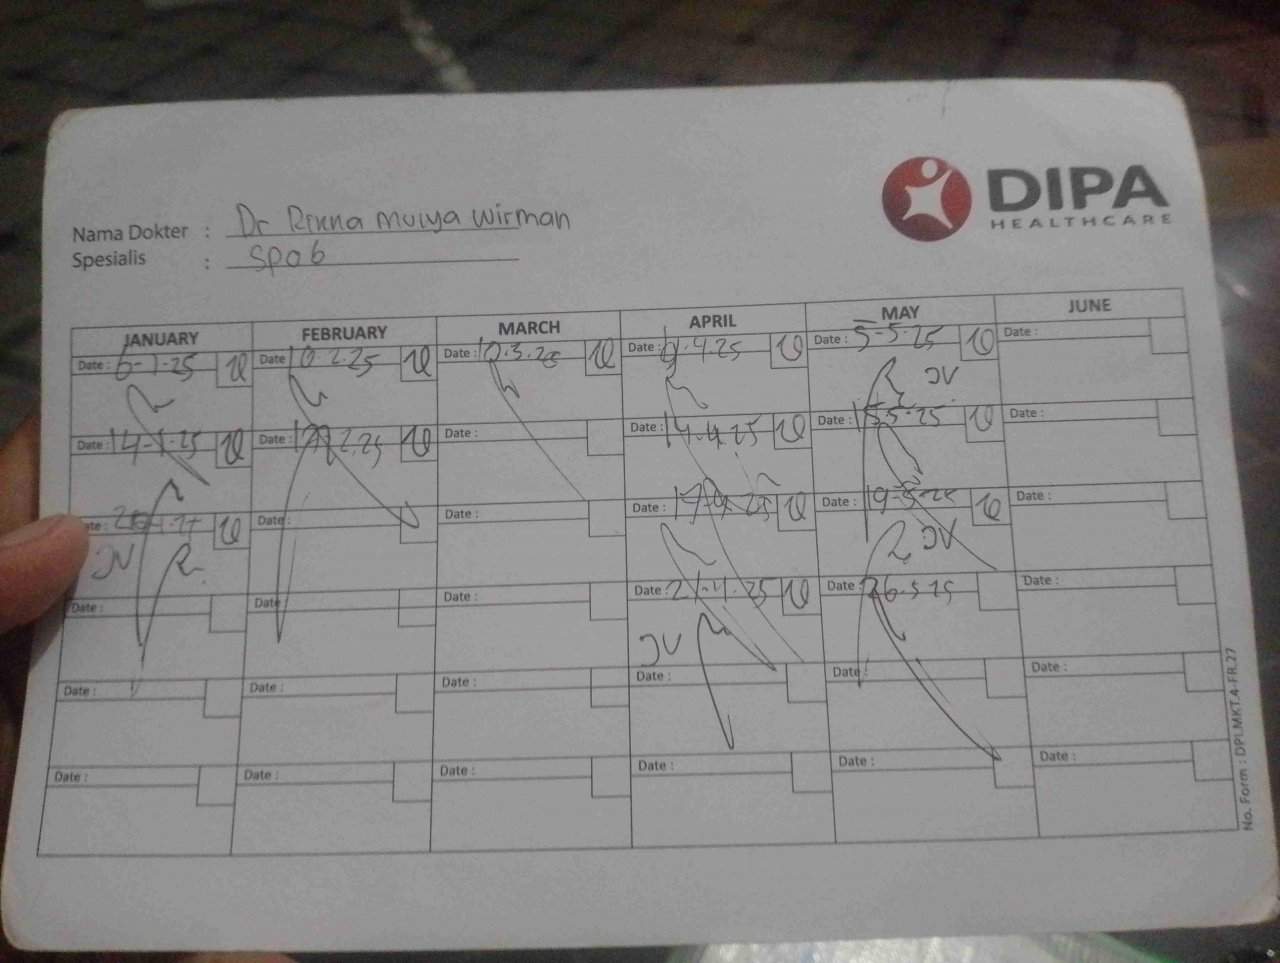 DIPA
HEALTHCARE
Nama Dokter : Dr Rinna Mulya Wirman
Spesialis : SpoG
JANUARY FEBRUARY MARCH APRIL MAY JUNE
Date : 6-1-25 Date : 10.2.25 Date : 10.3.25 Date : 9.4.25 Date : 5-5-25 Date :
JV
Date : 14-1-25 Date : 17.2.25 Date : Date : 14.4.25 Date : 15.5.25 Date :
Date : Date : Date : Date : 17.4.25 Date : 19-5-25 Date :
JV JV
Date : Date : Date : Date : 21.4.25 Date : 26.5.25 Date :
JV
Date : Date : Date : Date : Date : Date :
Date : Date : Date : Date : Date : Date :
No. Form : DPLMKT.4-FR.27